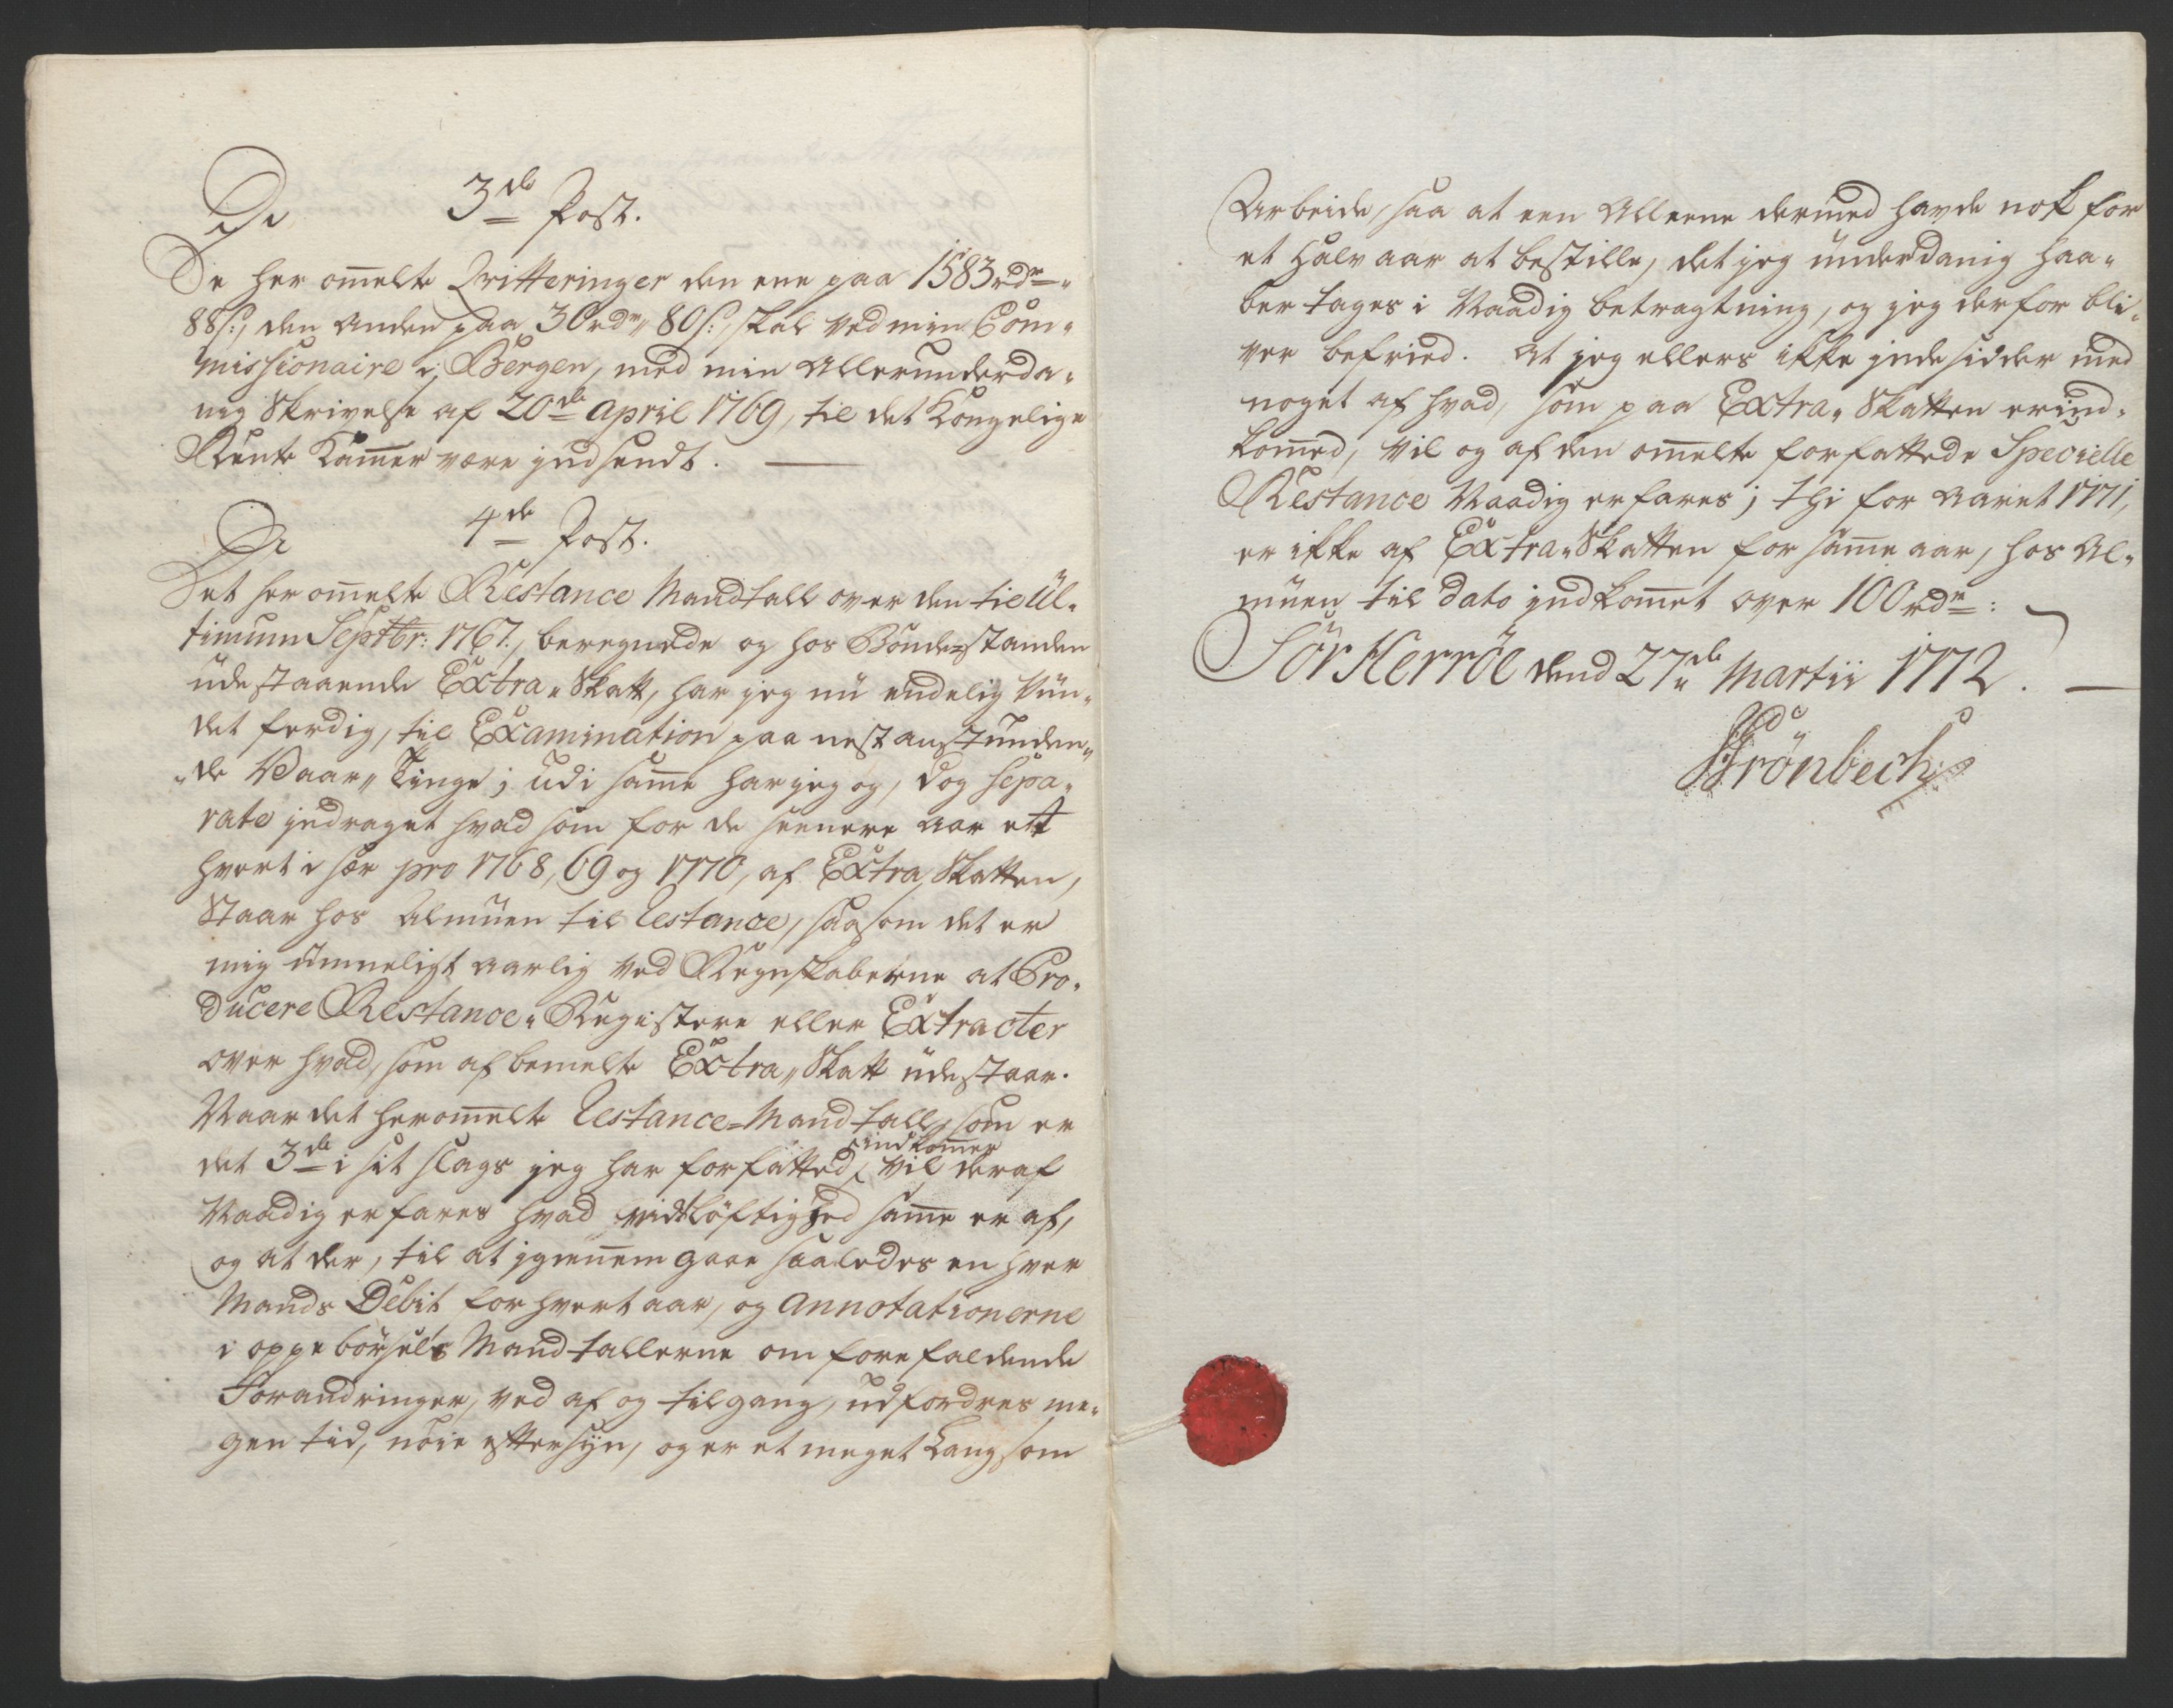 3de Post.
De her om̄elte Qvitteringer den ene paa 1583 rdr„
88 s:, den anden paa 30 rdr„ 80 s:, skal ved min Com„
missionaire i Bergen, med min Allerunderda„
nig Skrivelse af 20de April 1769, til det Kongelige
Rente Kam̄er være indsendt.
4de Post.
Det her om̄elte Restance Mandtall over den til Ul„
timum Septbr: 1767., beregnede og hos Bonde-standen
udestaaende Extra„Skatt, har jeg nu endelig vun„
det ferdig, til Examination paa nest anstunden„
„de Vaar„Tinge; udi sam̄e har jeg og, dog sepa„
rate indraget hvad som for de seenere aar ett
hvert i sær pro 1768, 69 og 1770, af Extra Skatten,
staar hos Almuen til Restance, saasom det er
mig umueligt aarlig ved Regnskaberne at Pro„
ducere Restance„Registere eller Extracter
over hvad, som af bemelte Extra„Skatt udestaar.
Naar det herom̄elte Restance-Mandtall, som er
det 3de i sit slags jeg har forfatted, indkom̄er vil deraf
Naadig erfares hvad vidtløftighed sam̄e er af,
og at der, til at igiennem gaae saaledes en hver
Mands Debit for hvert aar, og Annotationerne
i oppebørsels Mandtallerne om forefaldende
Forandringer, ved af og tilgang, udfordres me„
gen tid, nøie eftersyn, og er et meget Langsom
Arbeide, saa at een Alleene dermed havde nok for
et halv aar at bestille, det jeg underdanig haa„
ber tages i Naadig betragtning, og jeg derfor bli„
ver befried. At jeg ellers ikke indesidder med
noget af hvad, som paa Extra„Skatten er ind„
kom̄ed, vil og af den om̄elte forfattede Specielle
Restance Naadig erfares; thi for aaret 1771,
er ikke af Extra„Skatten for sam̄e aar, hos Al„
muen til dato indkom̄et over 100 rdr:
Sør Herröe dend 27de Martii 1772.
Strönbech